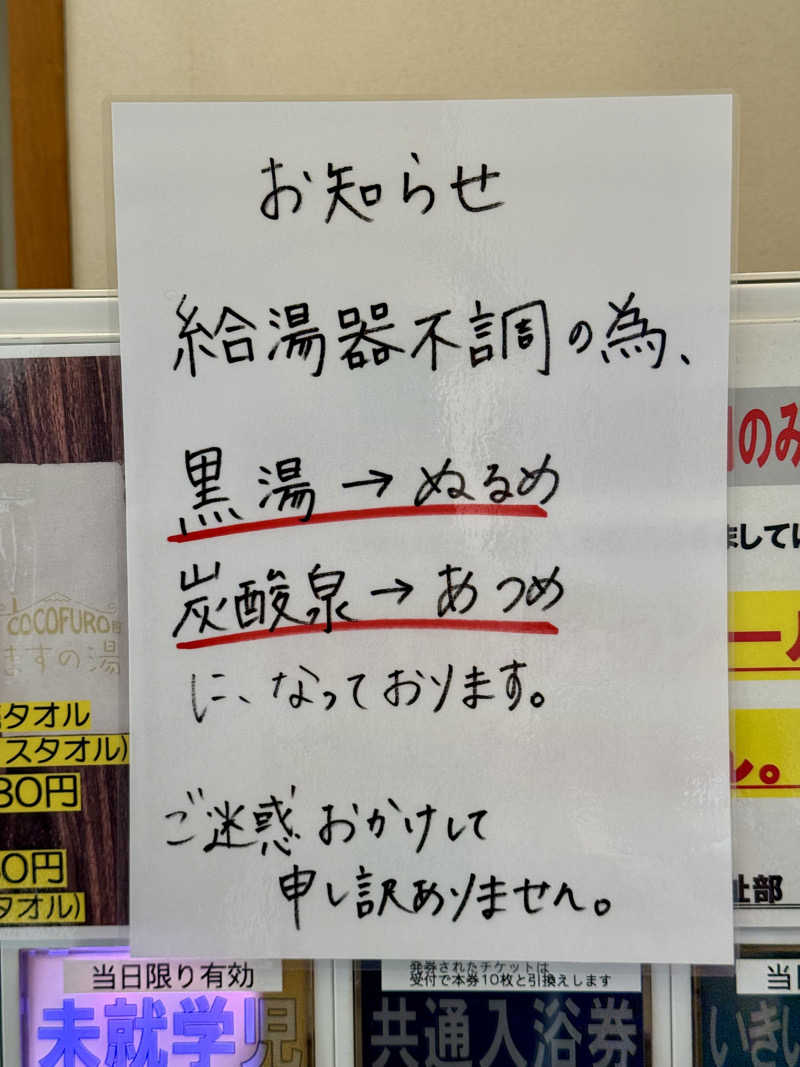 お知らせ
給湯器不調の為、
黒湯→ぬるめ
炭酸泉→あつめ
に、なっております。
ご迷惑おかけして
申し訳ありません。
COCOFURO
ますの湯
タオル
スタオル)
80円
0円
タオル)
のみ
ましてい
ー
ん。
祉部
当日限り有効
未就学児
発券されたチケットは
受付で本券10枚と引換えします
共通入浴券
当日
いきい